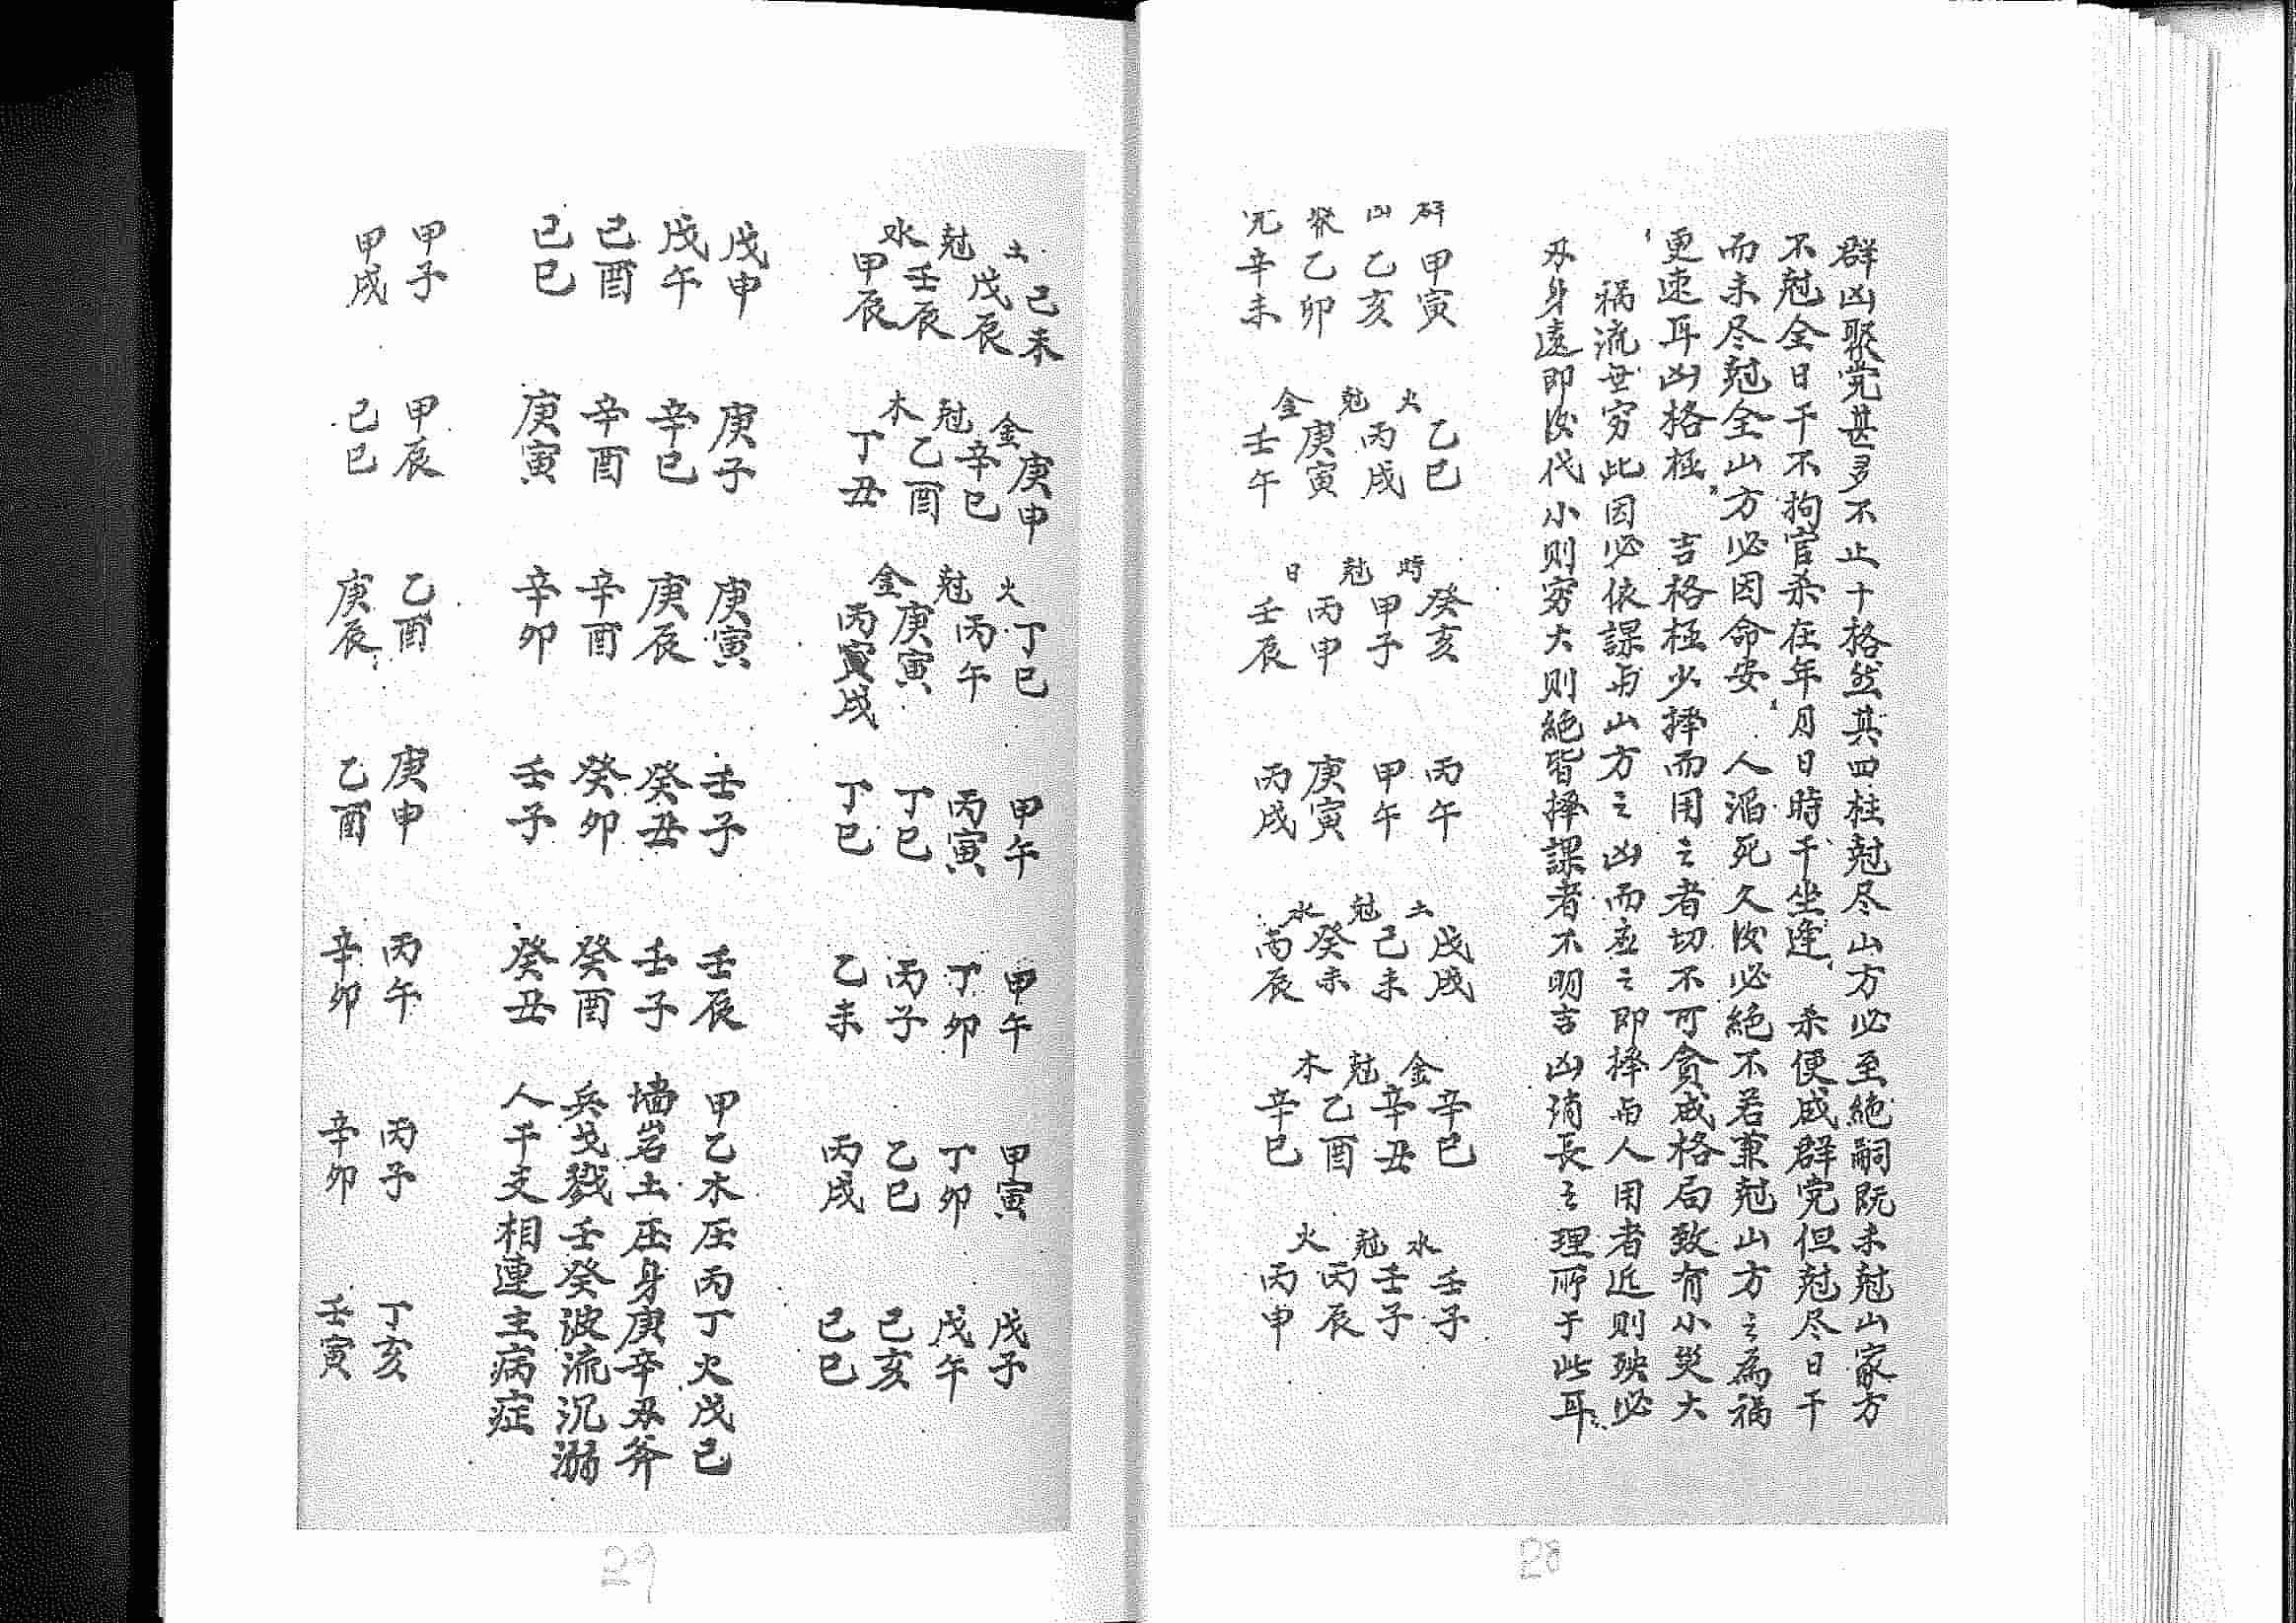 群凶聚党甚多不止十格然其四柱尅尽山方必至絶嗣既未尅山家方
不尅全日干不拘官杀在年月日時干坐逢杀便成群党但尅尽日干
而未尽尅全山方必因命安人滔死久後必絶不若兼尅山方之為禍
更速耳凶格極吉格極少择而用之者切不可貪成格局致有小災大
禍流世穷此因必依課与山方之凶而应之即择与人用者近則殃必
及身遠即後代小则穷大则絶皆择課者不明吉凶消長之理所于此耳
群 甲寅 火 乙巳 時 癸亥 丙午 土 戊戌 金 辛巳 水 壬子
凶 乙亥 尅 丙戌 尅 甲子 甲午 尅 己未 尅 辛丑 尅 壬子
聚 乙卯 金 庚寅 日 丙申 庚寅 水 癸未 木 乙酉 火 丙辰
党 辛未 壬午 壬辰 丙戌 丙辰 辛巳 丙申
28
土 己未 金 庚申 火 丁巳 甲午 甲午 甲寅 戊子
尅 戊辰 尅 辛巳 尅 丙午 丙寅 丁卯 丁卯 戊午
水 壬辰 木 乙酉 金 庚寅 丁巳 丙子 乙巳 己亥
甲辰 丁丑 丙寅戌 丁巳 乙未 丙戌 己巳
戊申 庚子 庚寅 壬子 壬辰 甲乙木压丙丁火戊己
戊午 辛巳 庚辰 癸丑 壬子 墙岩土压身庚辛刃斧
己酉 辛酉 辛酉 癸卯 癸酉 兵戈戮壬癸波流沉溺
己巳 庚寅 辛卯 壬子 癸丑 人干支相連主病症
甲子 甲辰 乙酉 庚申 丙午 丙子 丁亥
甲戌 己巳 庚辰 乙酉 辛卯 辛卯 壬寅
29